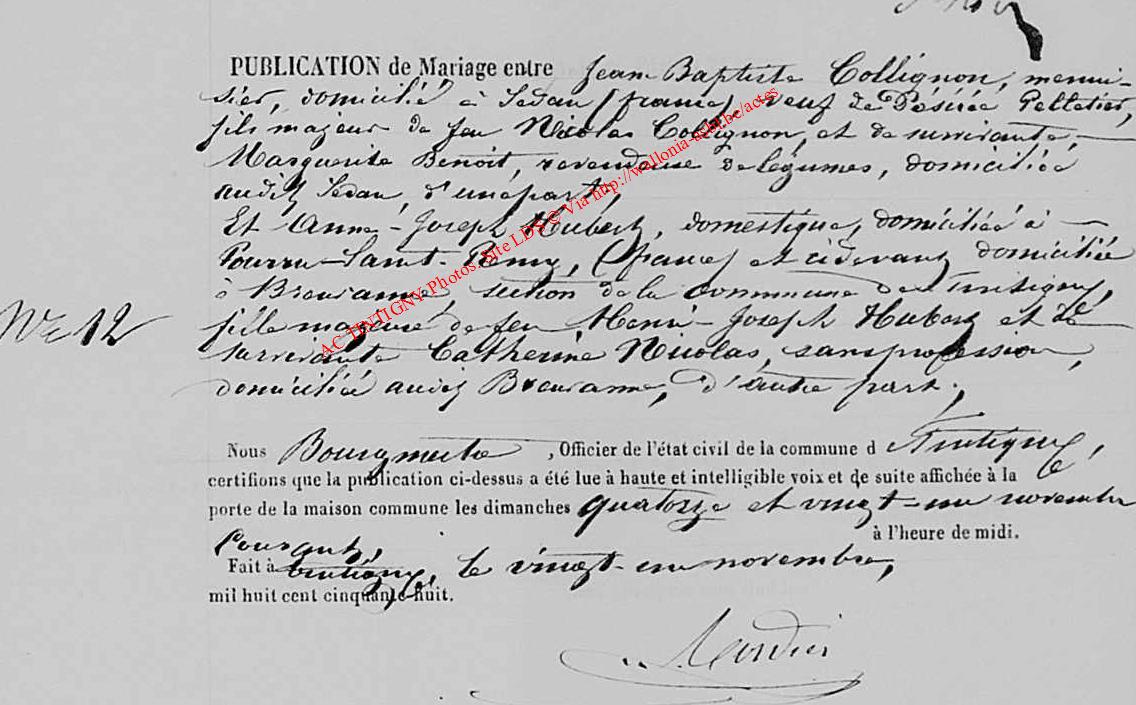 PUBLICATION de Mariage entre Jean Baptiste Collignon, menui-
sier, domicilié à Sedan (france) veuf de Désirée Pelletier,
fils majeur de feu Nicolas Collignon, et de survivante,
Marguerite Benoit, revendeuse de légumes, domiciliée
audit Sedan, d'une part,
Et Anne-Joseph Hubert, domestique, domiciliée à
Pourru-Saint-Remy, (france) et cidevant domiciliée
à Breuvanne, section de la commune de Tintigny,
N° 12
fille majeure de feu Henri-Joseph Hubert et de
survivante Catherine Nicolas, sans profession,
domiciliée audit Breuvanne, d'autre part.
Nous Bourgmestre, Officier de l'état civil de la commune d Tintigny,
certifions que la publication ci-dessus a été lue à haute et intelligible voix et de suite affichée à la
porte de la maison commune les dimanches quatorze et vingt-un novembre
courant, à l'heure de midi.
Fait à tintigny, le vingt-un novembre,
mil huit cent cinquante-huit.
AC TINTIGNY-Photos Site LDS © Via http://wallonia-asbl.be/actes